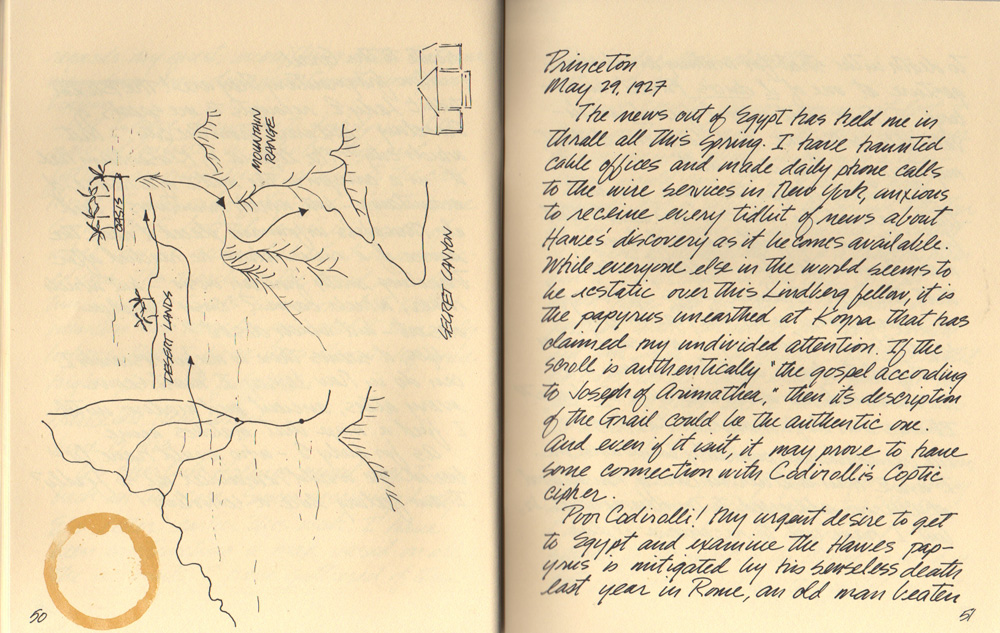 MOUNTAIN
RANGE
OASIS
DESERT LANDS
SECRET CANYON
50
Princeton
May 29, 1927
The news out of Egypt has held me in
thrall all this Spring. I have haunted
cable offices and made daily phone calls
to the wire services in New York, anxious
to receive every tidbit of news about
Hawes' discovery as it becomes available.
While everyone else in the world seems to
be ecstatic over this Lindberg fellow, it is
the papyrus unearthed at Koyra that has
claimed my undivided attention. If the
scroll is authentically "the gospel according
to Joseph of Arimathea," then its description
of the Grail could be the authentic one.
And even if it isn't, it may prove to have
some connection with Codirolli's Coptic
cipher.
Poor Codirolli! My urgent desire to get
to Egypt and examine the Hawes pap-
yrus is mitigated by his senseless death
last year in Rome, an old man beaten
51